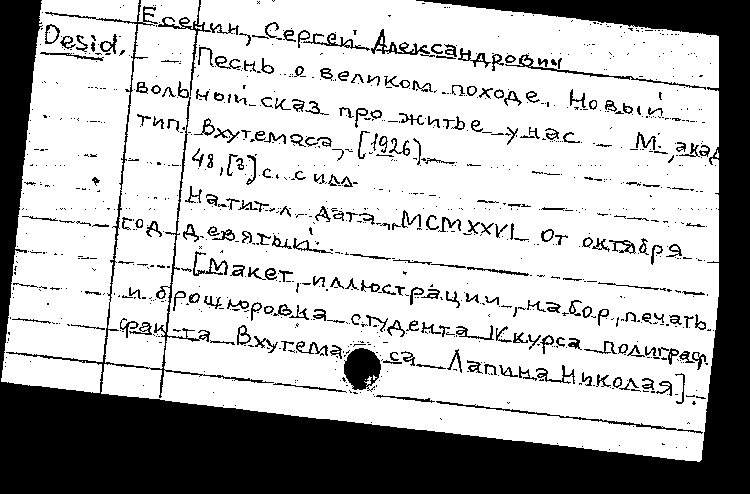 Есенин, Сергей Александрович
Desid.
Песнь о великом походе. Новый
вольный сказ про житье у нас – М., акад
тип. Вхутемаса, [1926].
48, [3] с. с илл.
На тит. л. дата: MCMXXVI. От октября
год девятый.
[Макет, иллюстрации, набор, печать
и брошюровка студента IV курса полиграф.
фак-та Вхутемаса Лапина Николая].